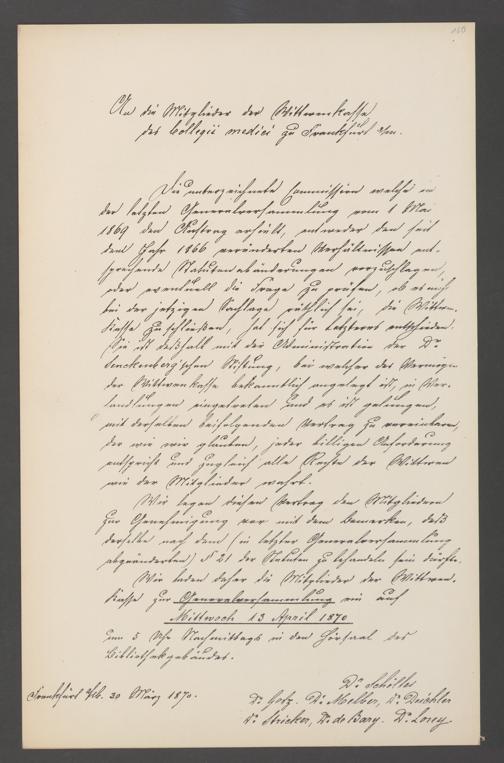 160
An die Mitglieder der Wittwenkasse
des Collegii medici zu Frankfurt a/m.
Die unterzeichnete Commission welche in
der letzten Generalversammlung vom 1 Mai
1869 den Auftrag erhielt, entweder den seit
dem Jahr 1866 veränderten Verhältnissen ent-
sprechende Statutenabänderungen vorzuschlagen,
oder eventuell die Frage zu prüfen, ob es nicht
bei der jetzigen Sachlage räthlich sei, die Wittwen-
kasse zu schließen, hat sich für letzteres entschieden.
Sie ist deßhalb mit der Administration der Dr
Senckenberg'schen Stiftung, bei welcher das Vermögen
der Wittwenkasse bekanntlich angelegt ist, in Ver-
handlungen eingetreten und es ist gelungen,
mit derselben beifolgenden Vertrag zu vereinbaren,
der wie wir glauben, jeder billigen Anforderung
entspricht und zugleich alle Rechte der Wittwen
wie der Mitglieder wahrt.
Wir legen diesen Vertrag den Mitgliedern
zur Genehmigung vor mit dem Bemerken, daß
derselbe nach dem (in letzter Generalversammlung
abgeänderten) § 21 der Statuten zu behandeln sein dürfte.
Wir laden daher die Mitglieder der Wittwen-
kasse zur Generalversammlung ein auf
Mittwoch 13 April 1870
um 5 Uhr Nachmittags in den Hörsaal des
Bibliothekgebäudes.
Frankfurt a/m. 30 März 1870.
Dr Schölles
Dr Lotz. Dr Melber, Dr Deichler
Dr Stricker, Dr de Bary. Dr Lorey